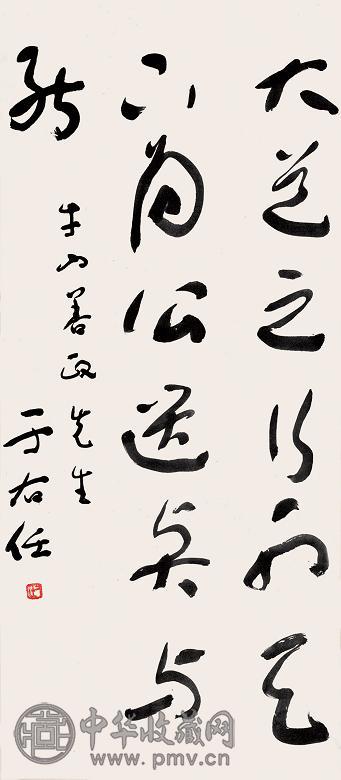 大道之行也天
下為公選賢與
能
牛山善政先生
于右任
中华收藏网
www.pmv.cn